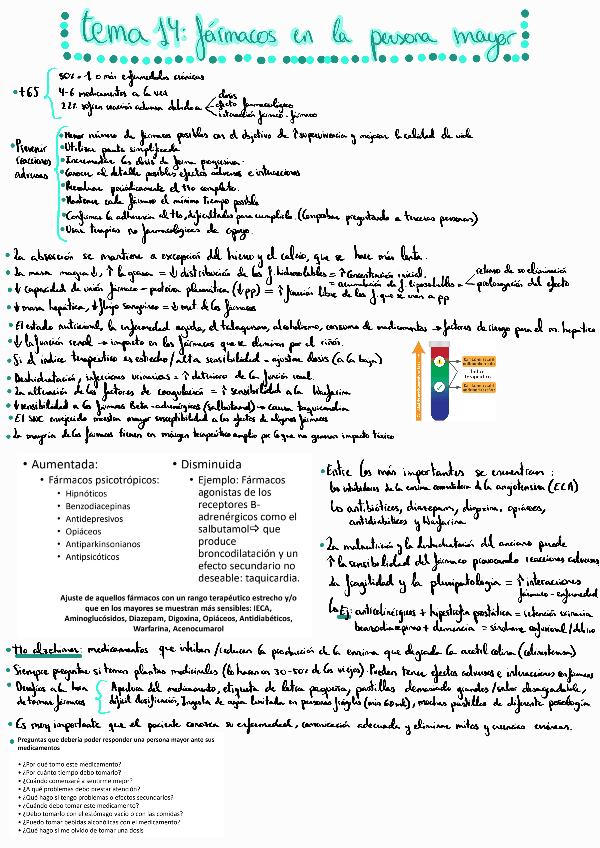 tema 14: fármacos en la persona mayor
• +65
50% = 1 o más enfermedades crónicas
4-6 medicamentos a la vez
22% sufren reacción adversa debido a
dosis
efecto farmacológico
interacción fármaco - fármaco
• Prevenir reacciones adversas
• Menor número de fármacos posibles con el objetivo de ↑ supervivencia y mejorar la calidad de vida
• Utilizar pauta simplificada
• Incrementar las dosis de forma progresiva.
• Conocer al detalle posibles efectos adversos e interacciones
• Reevaluar periódicamente el tto completo.
• Mantener cada fármaco el mínimo tiempo posible
• Confirmar la adherencia al tto, dificultades para cumplirlo. (Comprobar preguntando a terceras personas)
• Usar terapias no farmacológicas de apoyo.
• La absorción se mantiene a excepción del hierro y el calcio, que se hace más lenta.
• La masa magra ↓, ↑ la grasa = ↓ distribución de los f. hidrosolubles = ↑ concentración inicial.
= acumulación de f. liposolubles
retraso de su eliminación
prolongación del efecto
• ↓ capacidad de unión fármaco - proteína plasmática (↓pp) = ↑ fracción libre de los f. que se unen a pp
• ↓ masa hepática, ↓ flujo sanguíneo = ↓ met de los fármacos
• El estado nutricional, la enfermedad aguda, el tabaquismo, alcoholismo, consumo de medicamentos → factores de riesgo para el m. hepático
• ↓ la función renal → impacto en los fármacos que se eliminan por el riñón.
• Si el índice terapéutico es estrecho / alta sensibilidad → ajustar dosis (a la baja)
• Deshidratación, infecciones urinarias = ↑ deterioro de la función renal.
• La alteración de los factores de coagulación = ↑ sensibilidad a la Warfarina
• ↓ sensibilidad a los fármacos Beta-adrenérgicos (salbutamol) → causa taquicardia
• El SNC envejecido muestra mayor susceptibilidad a los efectos de algunos fármacos
• La mayoría de los fármacos tienen un margen terapéutico amplio por lo que no generan impacto tóxico
• Aumentada:
• Fármacos psicotrópicos:
• Hipnóticos
• Benzodiacepinas
• Antidepresivos
• Opiáceos
• Antiparkinsonianos
• Antipsicóticos
• Disminuida
• Ejemplo: Fármacos
agonistas de los
receptores B-
adrenérgicos como el
salbutamol⇨ que
produce
broncodilatación y un
efecto secundario no
deseable: taquicardia.
Ajuste de aquellos fármacos con un rango terapéutico estrecho y/o
que en los mayores se muestran más sensibles: IECA,
Aminoglucósidos, Diazepam, Digoxina, Opiáceos, Antidiabéticos,
Warfarina, Acenocumarol
• Entre los más importantes se encuentran:
los inhibidores de la enzima convertidora de la angiotensina (ECA)
los antibióticos, diazepam, digoxina, opiáceos,
antidiabéticos y Warfarina
• La malnutrición y la deshidratación del anciano puede
↑ la sensibilidad del fármaco provocando reacciones adversas
La fragilidad y la pluripatología = ↑ interacciones
fármaco - enfermedad
Ej: anticolinérgicos + hipertrofia prostática = retención urinaria
benzodiacepinas + demencia = síndrome confusional / delirio
• Tto alzheimer: medicamentos que inhiban / reducen la producción de la enzima que degrada la acetilcolina (colinesterasa)
• Siempre preguntar si toman plantas medicinales (lo hacen un 30-50% de los viejos). Pueden tener efectos adversos e interacciones con fármacos
• Desafíos a la hora de tomar fármacos
Apertura del medicamento, etiqueta de letra pequeña, pastillas demasiado grandes / sabor desagradable,
difícil dosificación, Ingesta de agua limitada en personas frágiles (mín 60ml), muchas pastillas de diferente posología
• Es muy importante que el paciente conozca su enfermedad, comunicación adecuada y eliminar mitos y creencias erróneas.
• Preguntas que debería poder responder una persona mayor ante sus
medicamentos
• ¿Por qué tomo este medicamento?
• ¿Por cuánto tiempo debo tomarlo?
• ¿Cuándo comenzaré a sentirme mejor?
• ¿A qué problemas debo prestar atención?
• ¿Qué hago si tengo problemas o efectos secundarios?
• ¿Cuándo debo tomar este medicamento?
• ¿Debo tomarlo con el estómago vacío o con las comidas?
• ¿Puedo tomar bebidas alcohólicas con el medicamento?
• ¿Qué hago si me olvido de tomar una dosis